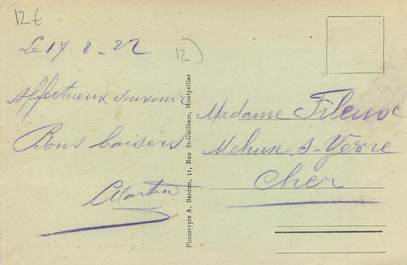 12€
Le 17 8-22
12
Affectueux souvenir
Bons baisers
Martin
Phototypie A. Bardou, 11, Rue St-Guilhem, Montpellier
Madame
Mehun s-Yèvre
Cher